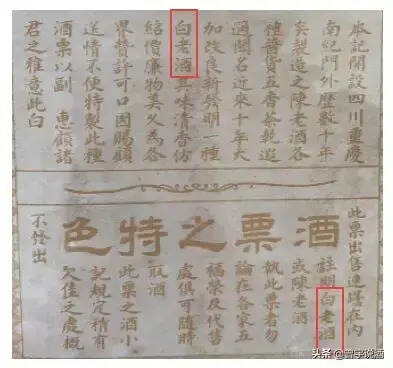 本記開設四川重慶
南紀門外歷數十年
矣製造之陳老酒各
種醬貨五香茶乾遐
邇聞名近來十年大
加改良新發明一種
白老酒其味清香仿
紹價廉物美久為各
界贊許可口因賜顧
送情不便特製此種
酒票以副 惠顧諸
君之雅意此白
酒票之特色
此票出售連罎在內
註明白老酒
或陳老酒
執此票者勿
論在各家五
福榮及代售
處俱可隨時
取酒
此票之酒小
記規定稍有
欠佳之處概
不怪出
头条 @宫宇说酒